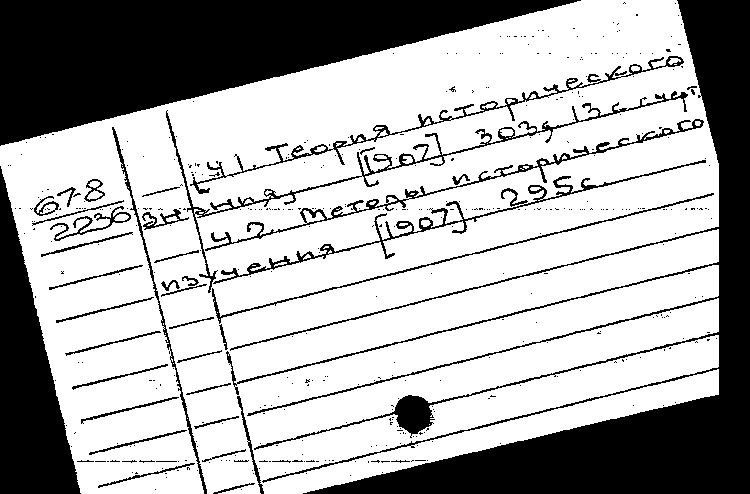 [ч 1. Теория исторического
знания, [1907]. 303, 13 с. черт.
ч 2. Методы исторического
изучения [1907]. 295 с.
67-8
2236